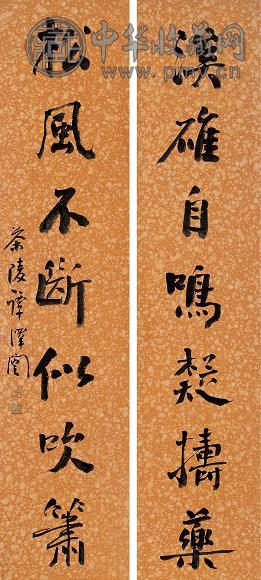 中华收藏网
www.pmy.cn
溪碓自鳴疑擣藥
松風不斷似吹簫
茶陵譚澤闓